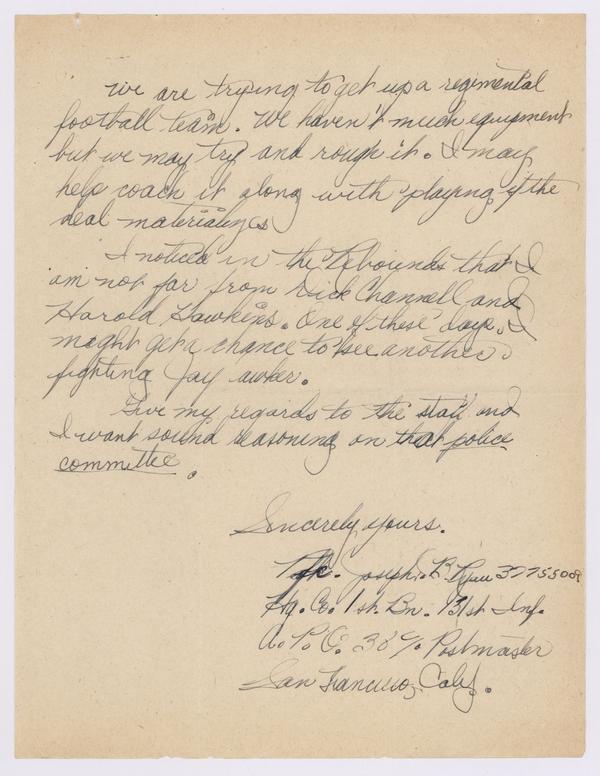 We are trying to get up a regimental
football team. We haven't much equipment
but we may try and rough it. I may
help coach it along with playing if the
deal materializes
I noticed in the Rebounds that I
am not far from Dick Channell and
Harold Hawkins. One of these days I
might get a chance to see another
fighting Jay awker.
Give my regards to the staff and
I want sound reasoning on that police
committee.
Sincerely yours.
Pfc. Joseph. B. 37755008
Hq. Co. 1st. Bn. 131st Inf.
A. P. O. 38 % Postmaster
San Francisco, Calif.